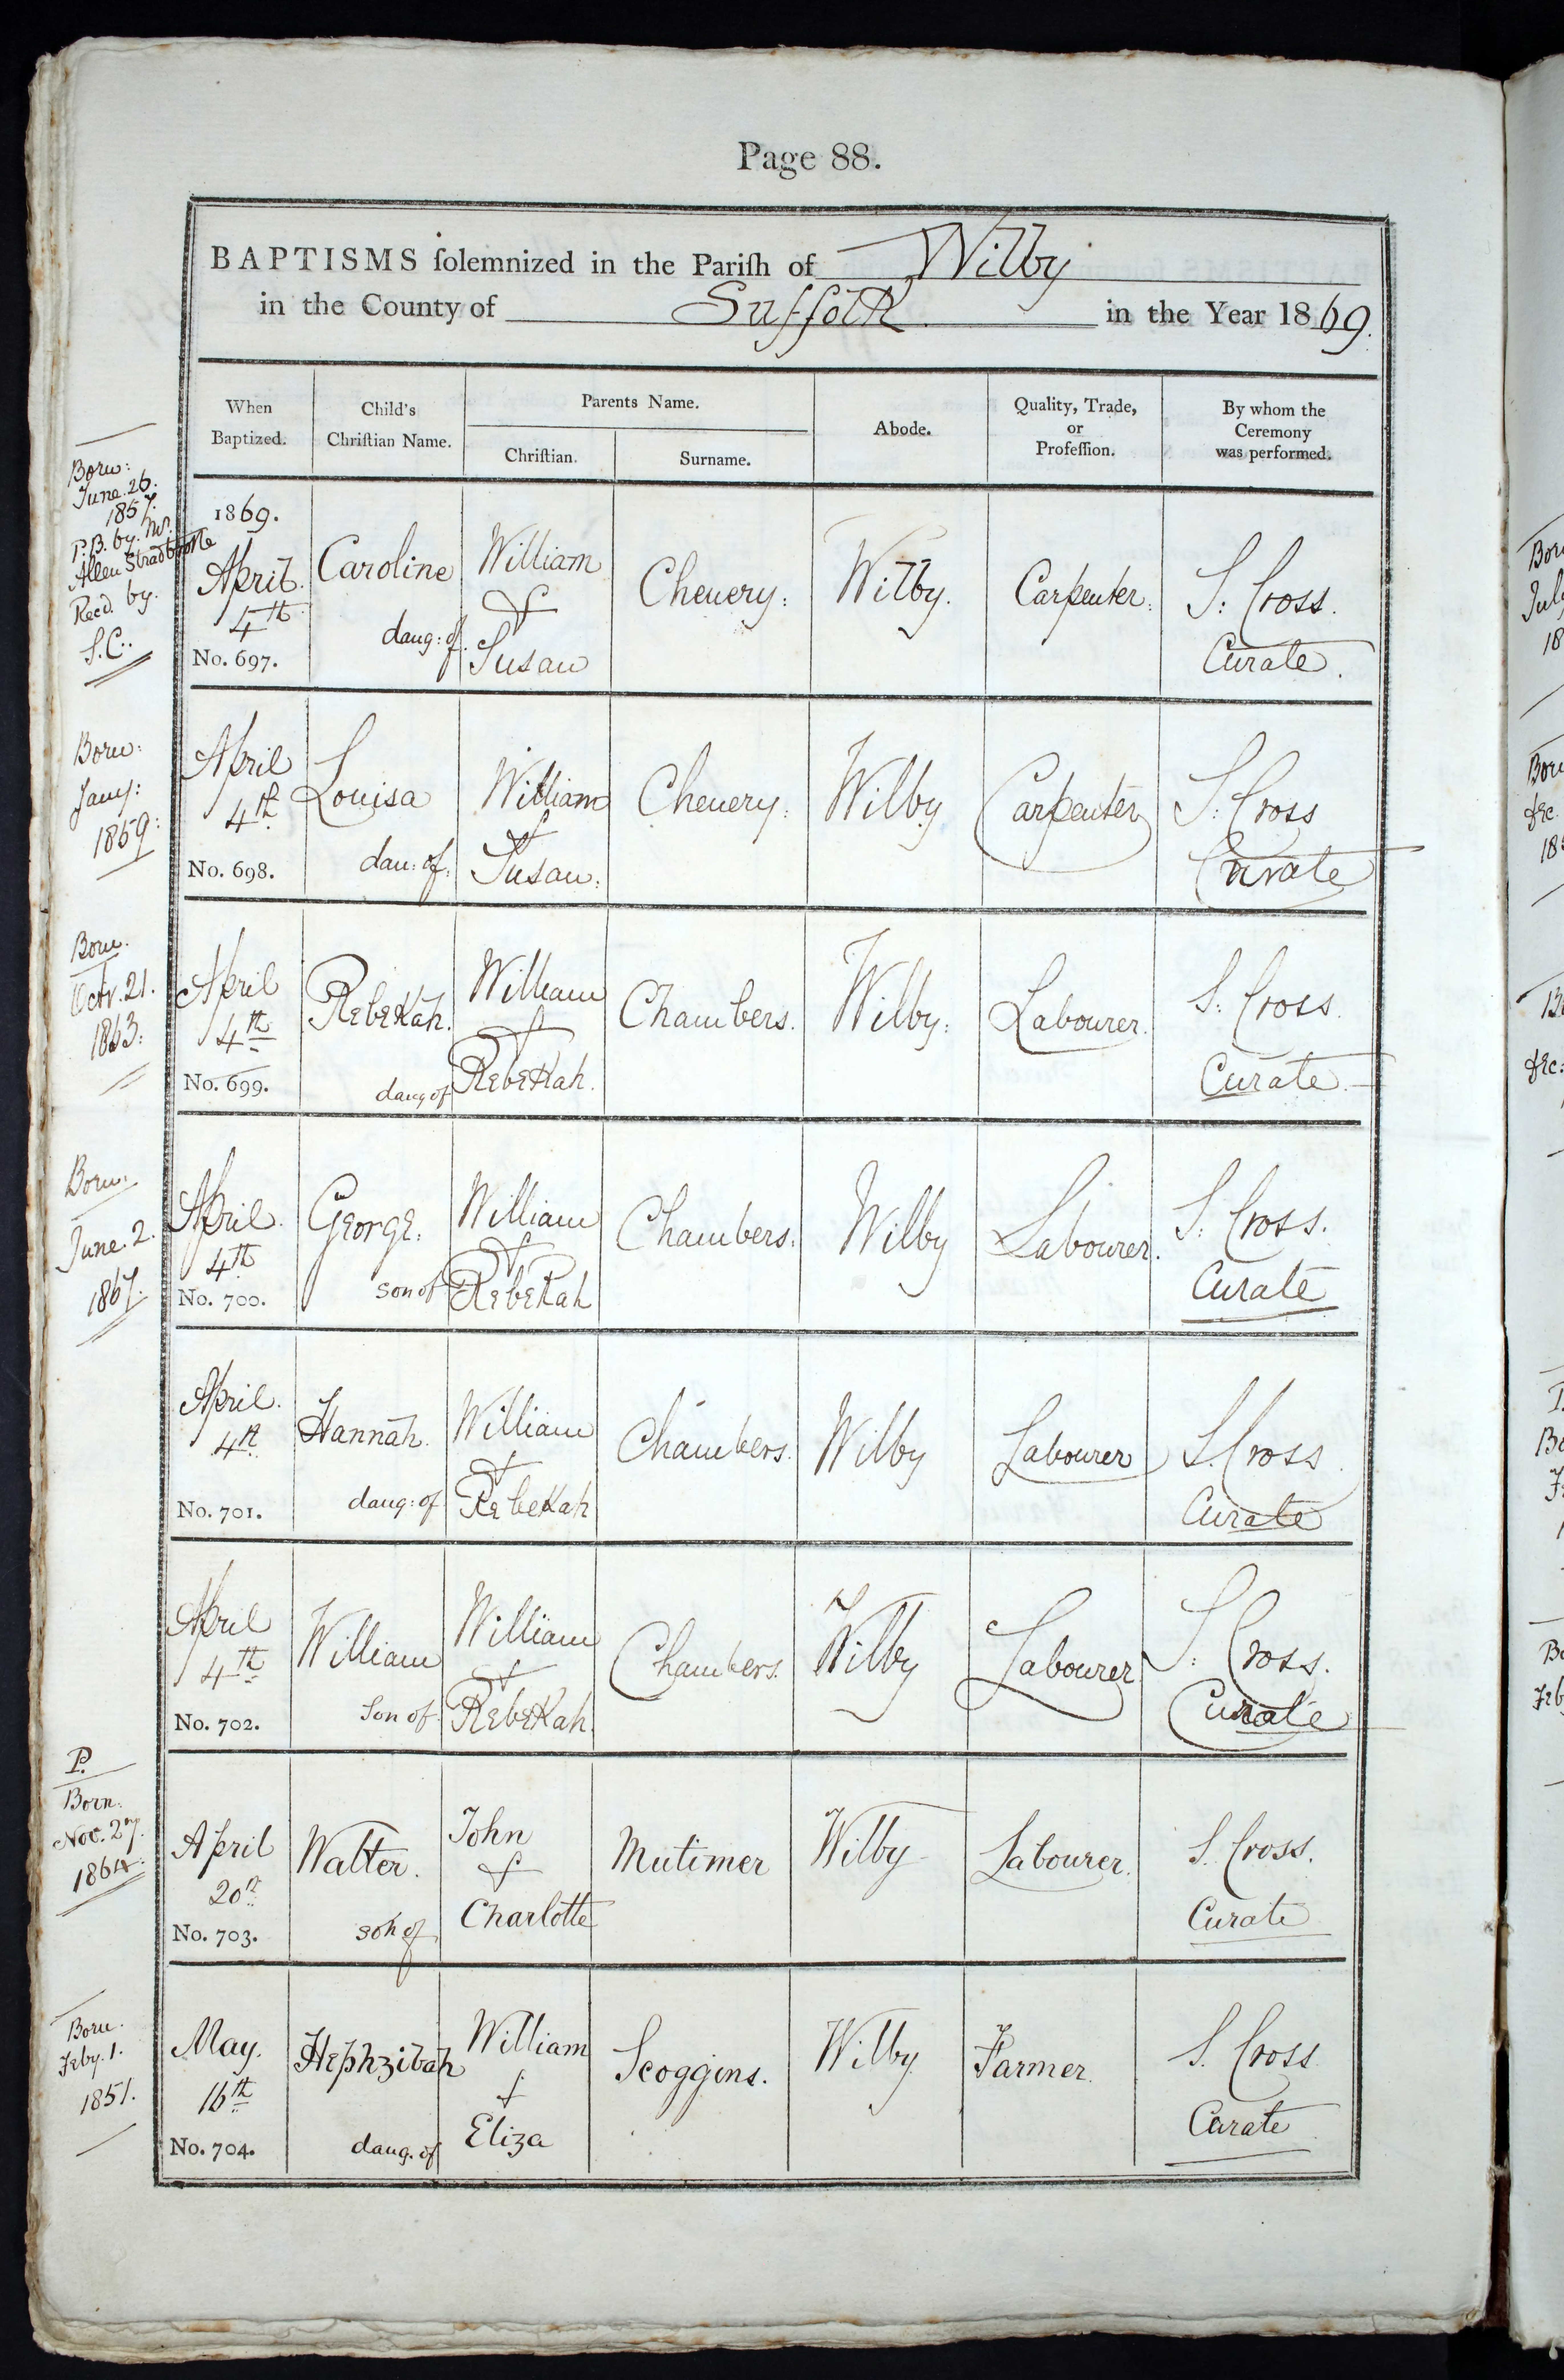 Page 88.
BAPTISMS solemnized in the Parish of Wilby
in the County of Suffolk in the Year 1869.
When Baptized.
Child's Christian Name.
Parents Name.
Christian.
Surname.
Abode.
Quality, Trade, or Profession.
By whom the Ceremony was performed.
Born:
June. 26.
1857.
P.B. by. Mr.
Allen Stradbroke
Recd. by.
S.C:.
1869.
April.
4th
No. 697.
Caroline
daug: of.
William
&
Susan
Chenery:
Wilby.
Carpenter:
S: Cross.
Curate.
Born:
Jany:
1859:
April
4th
No. 698.
Louisa
dau: of:
William
&
Susan:
Chenery:
Wilby
Carpenter
S: Cross
Curate
Born.
Octr. 21.
1863:
April
4th
No. 699.
Rebekah.
daug of
William
&
Rebekah.
Chambers.
Wilby:
Labourer.
S: Cross.
Curate.
Born:
June. 2.
1867.
April.
4th
No. 700.
George.
son of
William
&
Rebekah
Chambers:
Wilby
Labourer.
S: Cross.
Curate
April.
4th
No. 701.
Hannah.
daug: of
William
&
Rebekah
Chambers.
Wilby
Labourer
S. Cross.
Curate
April
4th
No. 702.
William
Son of
William
&
Rebekah.
Chambers.
Wilby
Labourer
S: Cross.
Curate
P.
Born:
Nov. 27.
1864:
April
20th
No. 703.
Walter.
son of
John
&
Charlotte
Mutimer
Wilby
Labourer.
S. Cross.
Curate
Born.
Feby. 1.
1851.
May.
16th
No. 704.
Hephzibah
daug. of
William
&
Eliza
Scoggins.
Wilby
Farmer.
S. Cross
Curate